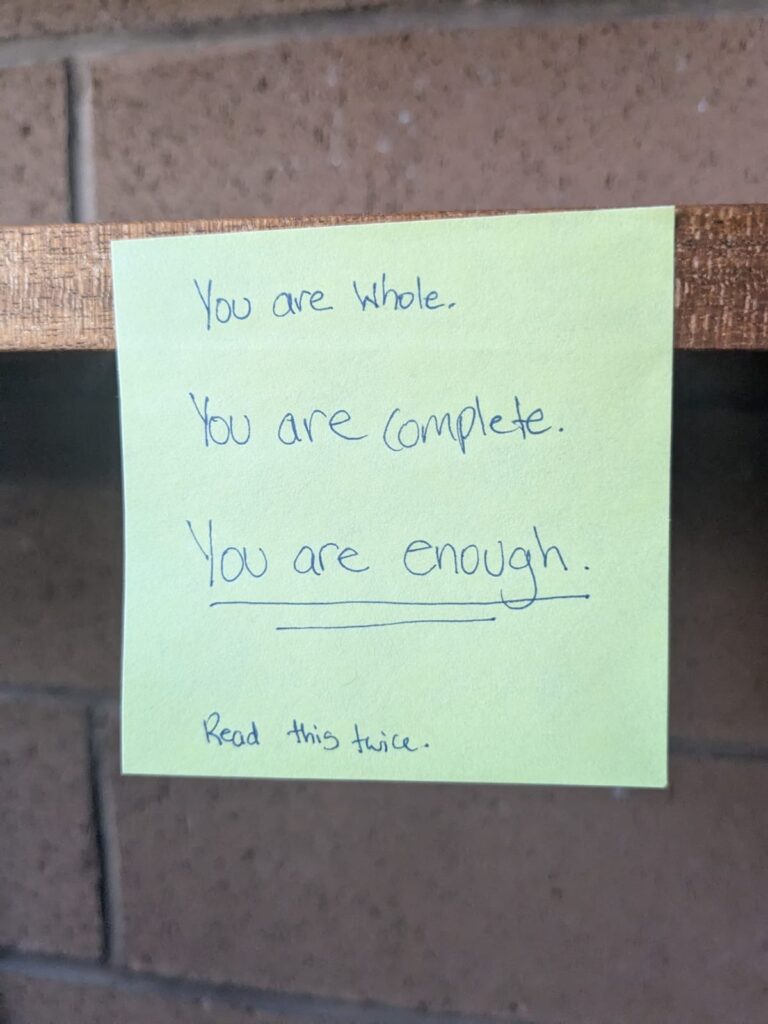 You are Whole.
You are complete.
You are enough.
Read this twice.